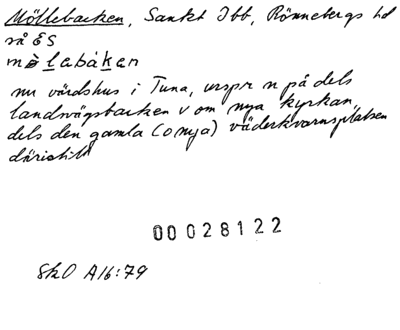 Möllebacken, Sankt Ibb, Rönnebergs hd
så ES
mòlabákan
nu värdshus i Tuna, urspr n på dels
landsvägsbacken v om nya kyrkan,
dels den gamla (o nya) väderkvarnsplatsen
därintill
00028122
SkO A16:79